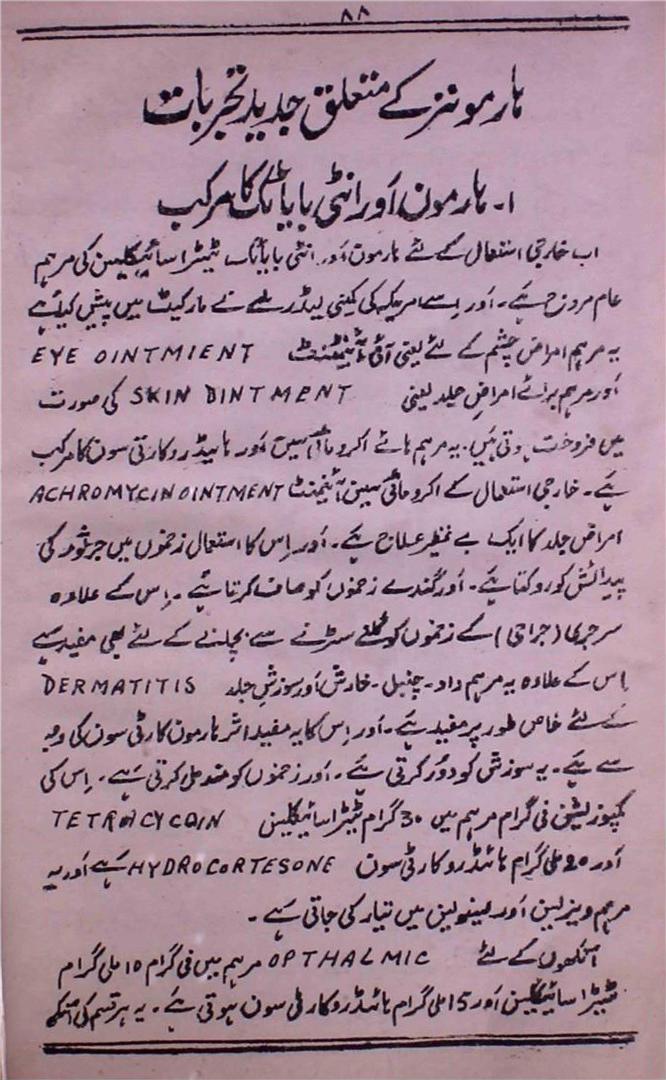 ۸۸
ہارمونز کے متعلق جدید تجربات
۱۔ ہارمون اور انٹی بایاٹک کا مرکب
اب خارجی استعمال کے لئے ہارمون اور انٹی بایاٹک ٹیٹراسائیکلین کی مرہم
عام مروج ہے۔ اور اسے امریکہ کی کمپنی لیڈرلے نے مارکیٹ میں پیش کیا ہے
یہ مرہم امراض چشم کے لئے یعنی آئی آئینٹمنٹ EYE OINTMIENT
اور مرہم برائے امراض جلد یعنی SKIN OINTMENT کی صورت
میں فروخت ہوتی ہیں۔ یہ مرہم ہائے اکرومائی سین اور ہائیڈروکارٹی سون کا مرکب
ہے۔ خارجی استعمال کے اکرومائی سین آئینمنٹ ACHROMYCIN OINTMENT
امراض جلد کا ایک بے نظیر علاج ہے۔ اور اس کا استعمال زخموں میں جرثومہ کی
پیدائش کو روکتا ہے۔ اور گندے زخموں کو صاف کرتا ہے۔ اس کے علاوہ
سرجری (جراحی) کے زخموں کو گلنے سڑنے سے بچانے کے لئے بھی مفید ہے
اس کے علاوہ یہ مرہم داد۔ چنبل۔ خارش اور سوزش جلد DERMATITIS
کے لئے خاص طور پر مفید ہے۔ اور اس کا یہ مفید اثر ہارمون کارٹی سون کی وجہ
سے ہے۔ یہ سوزش کو دور کرتی ہے۔ اور زخموں کو مندمل کرتی ہے۔ اس کی
کمپوزیشن فی گرام مرہم میں 30 گرام ٹیٹراسائیکلین TETRACYCQIN
اور 20 ملی گرام ہائڈروکارٹی سون HYDROCORTESONE ہے اور یہ
مرہم ویزلین اور لینولین میں تیار کی جاتی ہے۔
آنکھوں کے لئے OPTHALMIC مرہم میں فی گرام 15 ملی گرام
ٹیٹراسائیکلین اور 15 ملی گرام ہائڈروکارٹی سون ہوتی ہے۔ یہ ہر قسم کی آنکھ